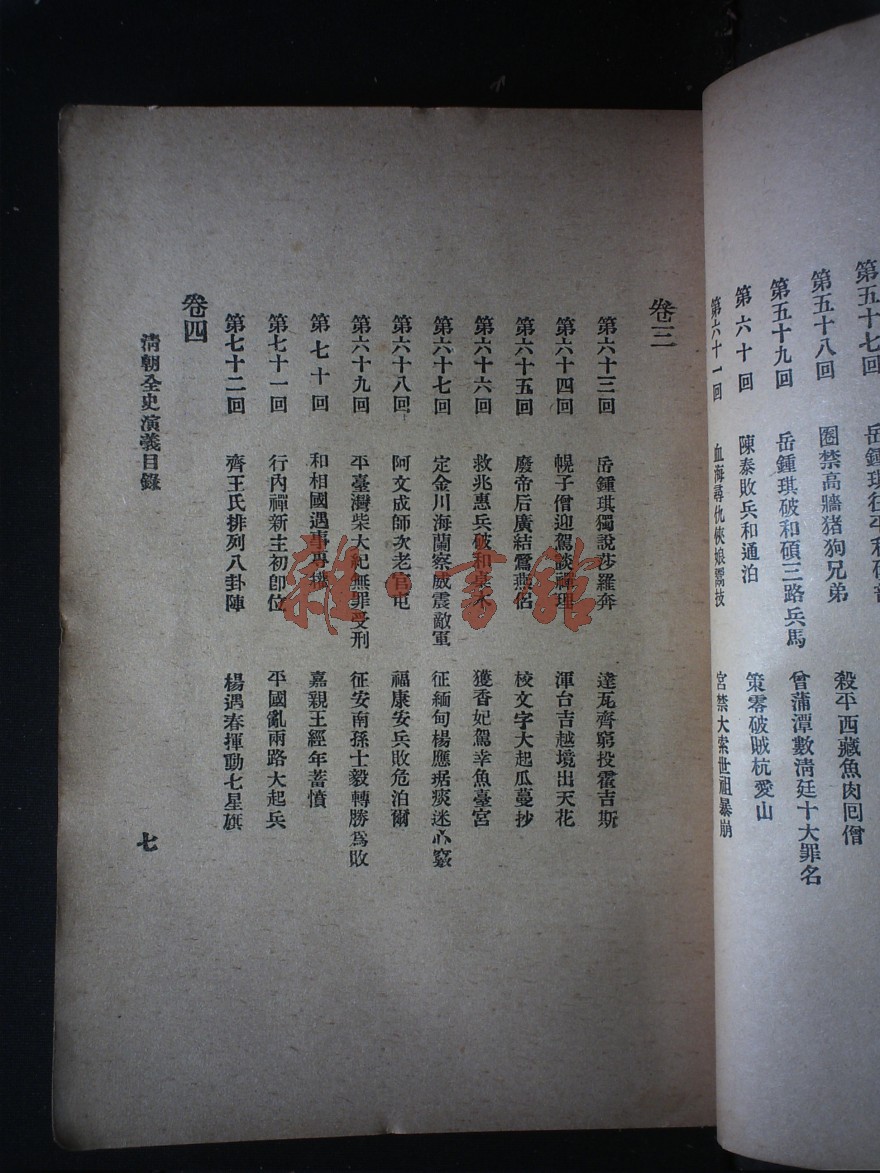 第五十七回 岳鍾琪往平
第五十八回 圈禁高牆猪狗兄弟 殺平西藏魚肉回僧
第五十九回 岳鍾琪破和碩三路兵馬 曾蒲潭數清廷十大罪名
第六十回 陳泰敗兵和通泊 策零破賊杭愛山
第六十一回 血海尋仇俠娘鬻技 宮禁大索世祖暴崩
卷三
第六十三回 岳鍾琪獨說莎羅奔 達瓦齊窮投霍吉斯
第六十四回 幌子僧迎駕談禪理 渾台吉越境出天花
第六十五回 廢帝后廣結鶯燕侶 校文字大起瓜蔓抄
第六十六回 救兆惠兵破和卓木 獲香妃駕幸魚臺宮
第六十七回 定金川海蘭察威震敵軍 征緬甸楊應琚痰迷心竅
第六十八回 阿文成師次老官屯 福康安兵敗危泊爾
第六十九回 平臺灣柴大紀無罪受刑 征安南孫士毅轉勝爲敗
第七十回 和相國遇事弄權 嘉親王經年蓄憤
第七十一回 行內禪新主初卽位 平國亂兩路大起兵
第七十二回 齊王氏排列八卦陣 楊遇春揮動七星旗
卷四
清朝全史演義目錄
七
雜·書館